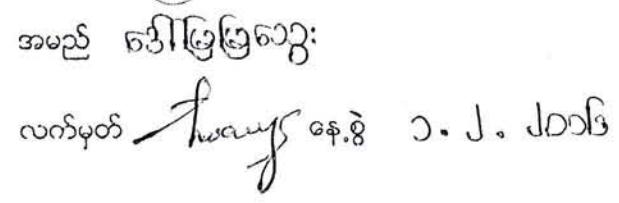 အမည် ဒေါ်ဖြူဖြူသွေး
လက်မှတ် နေ့စွဲ ၁.၂.၂၀၁၆